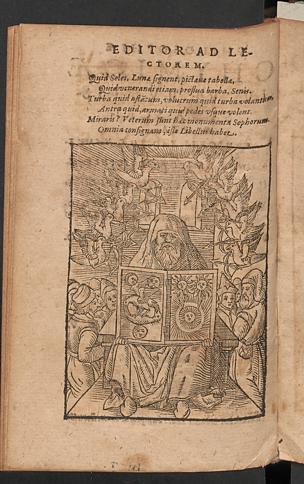 EDITOR AD LE-
CTOREM.
Quid Soles, Lunæ signent, pictæue tabellæ,
Quid venerandi etiam, prolixa barba, Senis.
Turba quid astantum, volucrum quid turba volantum,
Antra quid, armati quid pedes vsque volent.
Miraris? Veterum sunt hæc monumenta Sophorum
Omnia consignans, iste Libellus habet.